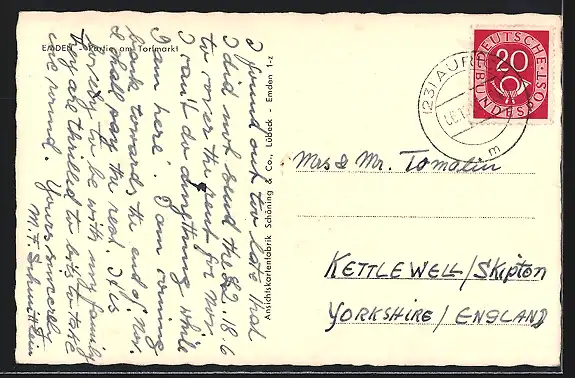 EMDEN - Partie am Torfmarkt
I found out too late that
I did not send the £2. 18. 6
to cover the rent for Nov.
I can't do anything while
I am here. I am coming
back towards the end of Nov.
I shall pay the rest. It is
lovely to be with my family
They are thrilled to bits to take
me round. Yours sincerely
M. F.
Ansichtskartenfabrik Schöning & Co., Lübeck - Emden 1-z
DEUTSCHE POST
20
BUNDESPOST
(23) AUR
m
Mrs & Mr. Tomalin
KETTLEWELL/Skipton
YORKSHIRE/ENGLAND